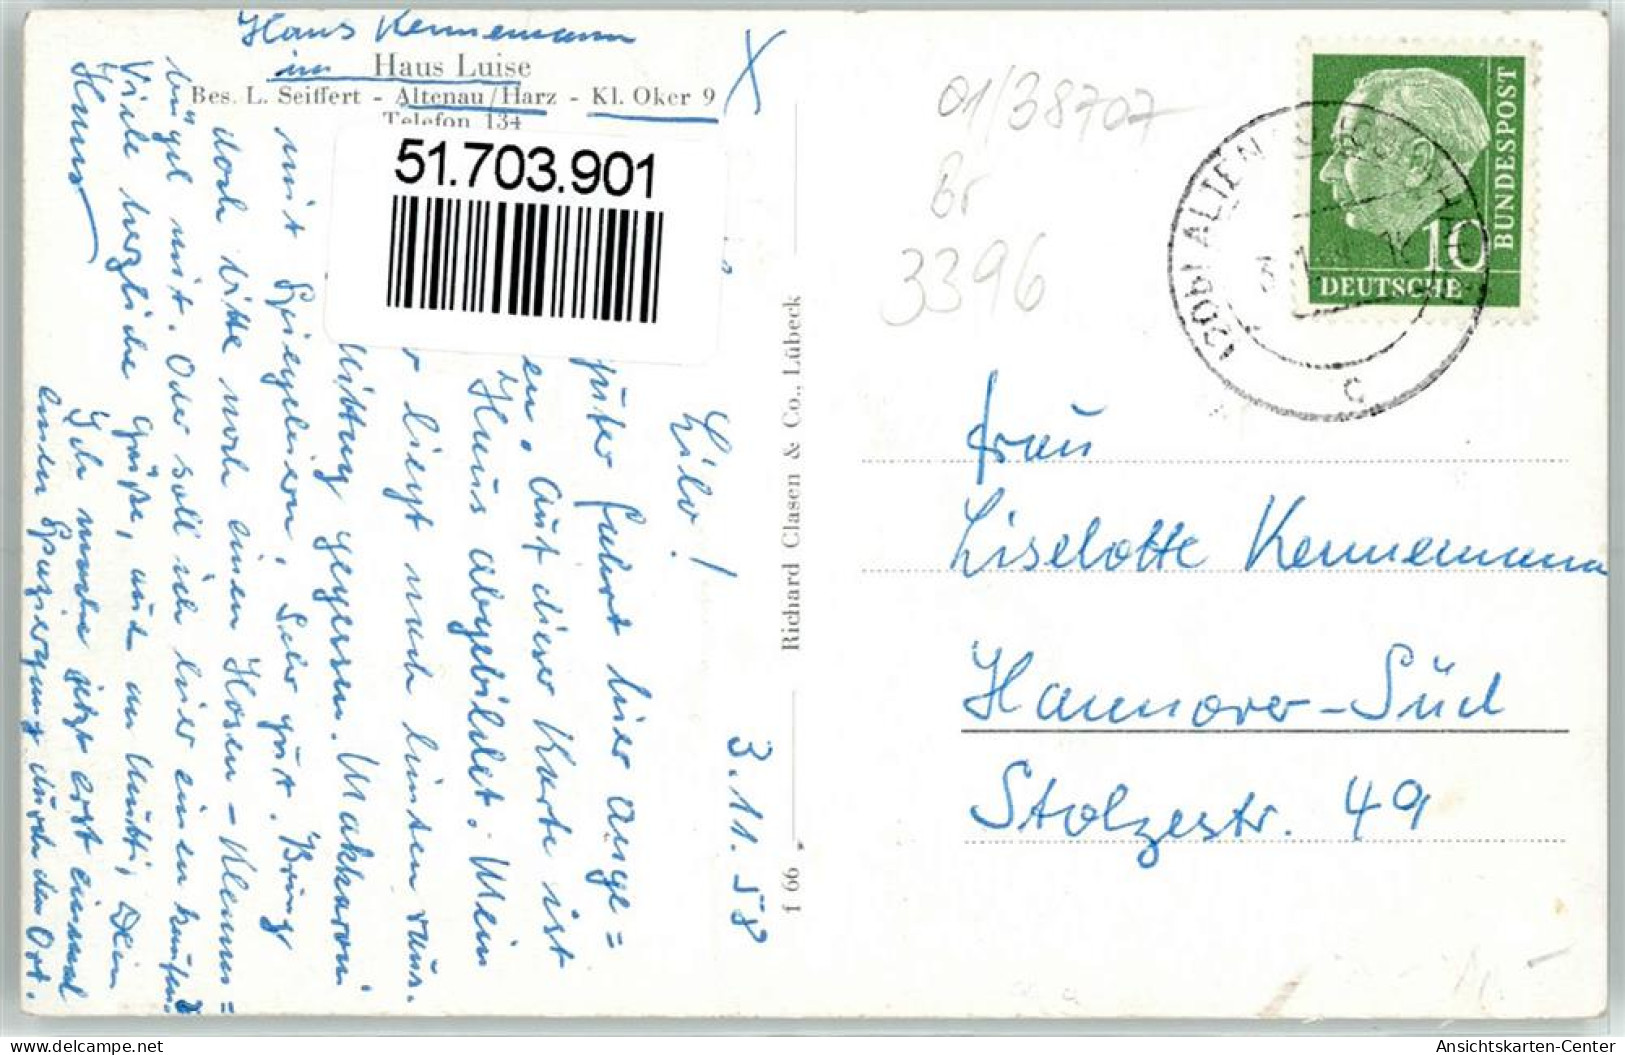 Hans Kennemann
im Haus Luise
Bes. L. Seiffert - Altenau/Harz - Kl. Oker 9
Telefon 134
51.703.901
3.11.58
Lilo!
guter Fahrt hier ange=
en. Auf dieser Karte ist
Haus abgebildet. Mein
r liegt nach hinten raus.
Mittag gegessen. Makkaroni
mit Spiegeleiern, Sehr gut. Bring
doch bitte noch einen Hosen-Klemm=
bügel mit. Oder soll ich hier einen kaufen?
Viele herzliche Grüße, auch an Mutti, Dein
Hans
Ich mache jetzt erst einmal
einen Spaziergang durch den Ort.
Richard Clasen & Co., Lübeck
f 66
01/38707
Br
3396
BUNDESPOST
10
DEUTSCHE
(20b) ALTENAU
c
Frau
Liselotte Kennemann
Hannover-Süd
Stolzestr. 49
Ansichtskarten-Center
delcampe.net